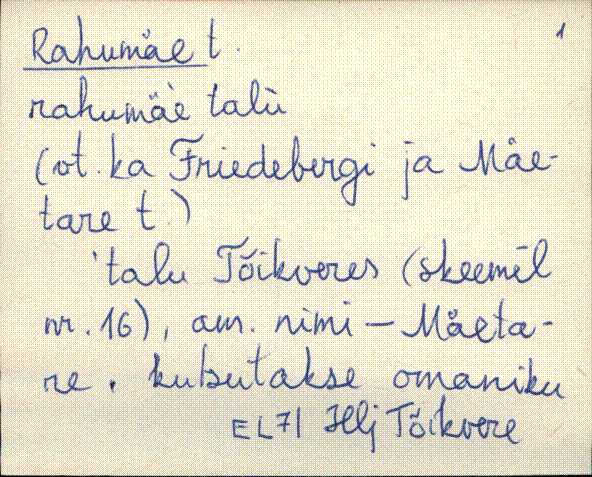 1
Rahumäe t.
rahumäe talu
(vt. ka Friedebergi ja Mäe-
tare t.)
'talu Tõikveres (skeemil
nr. 16), am. nimi – Mäeta-
re. kutsutakse omaniku
EL71 Hlj Tõikvere